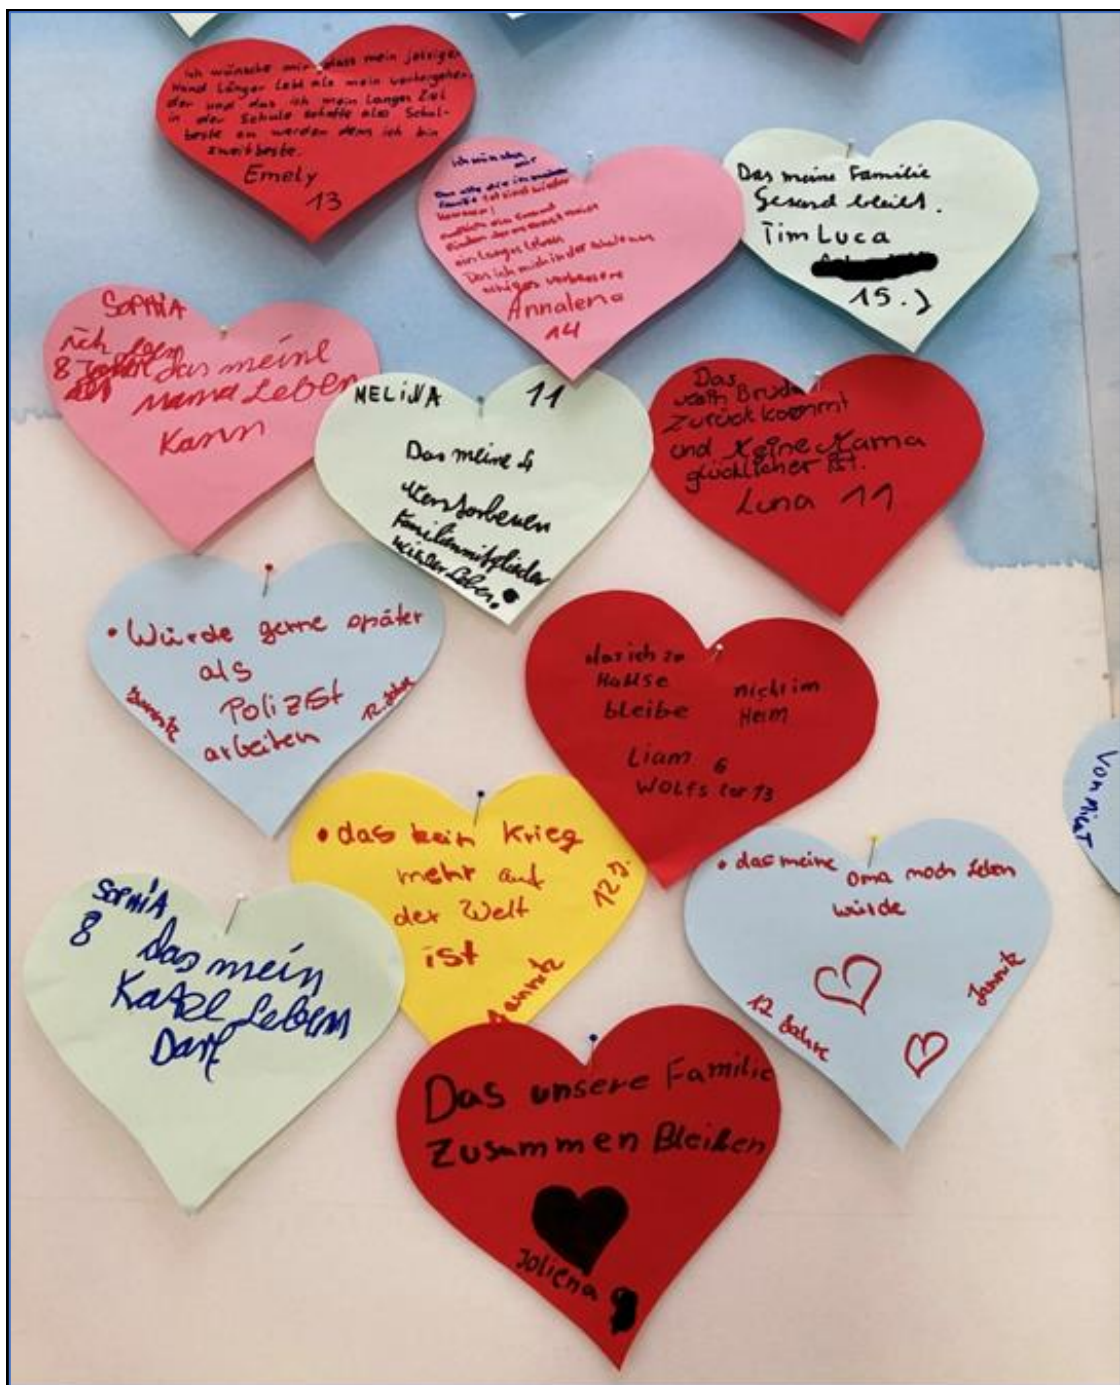 Ich wünsche mir dass mein jetziger
Hund Länger Lebt als mein vorheriger
der und das ich mein Langes Ziel
in der Schule schaffe als Schul-
beste zu werden denn ich bin
zweitbeste.
Emely
13
Ich wünsche
mir
Das alle die in meiner
Familie tot sind wieder
kommen!
endlich ein Freund
finden der es ernst meint
ein langes Leben
Das ich mich in der
einiges verbessere
Annalena
14
Das meine Familie
Gesund bleibt.
Tim Luca
15.)
SOPHIA
8
das meine
Mama Leben
Kann
MELINA 11
Das meine 4
verstorbenen
Familienmitglieder
wieder Leben.
Das
mein Bruder
Zurück kommt
und Meine Mama
glücklicher ist.
Luna 11
• Würde gerne später
als
Polizist
arbeiten
12. Jahre
das ich zu
Hause
bleibe
nicht im
Heim
Liam 6
WOLFS tor 13
• das kein Krieg
mehr auf
der Welt
ist
12 J.
• das meine Oma noch Leben
würde
12 Jahre
Jannitz
SOPHIA
8 das mein
Katel Leben
Darf
Das unsere Familie
Zusammen Bleiben
Joliena